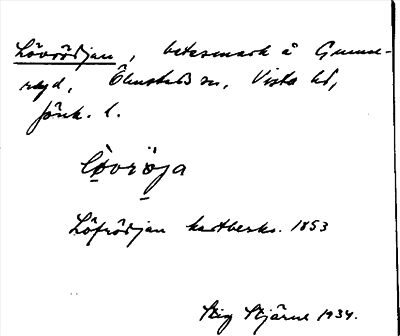 Lövrödjan, betesmark å Gunne-
ryd, Ölmstads sn, Vista hd,
Jönk. l.
lòvrö̀ja
Löfrödjan kartbeskr. 1853
Stig Stjärne 1934.